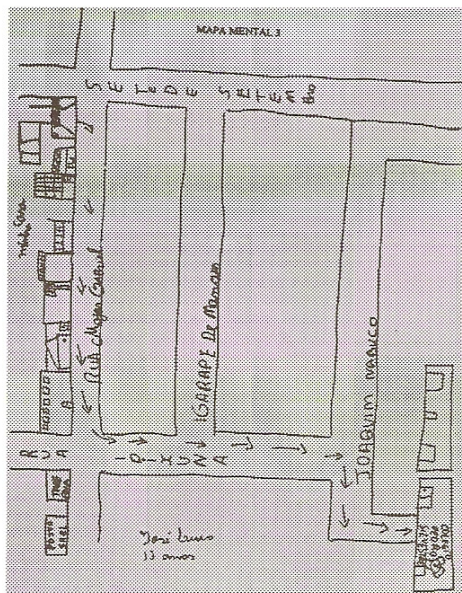 MAPA MENTAL 3
SETE DE SETEMBRO
minha Casa
RUA Major Gabriel
IGARAPE De Manaus
JOAQUIM NABUCO
RUA IPIXUNA
POSTO
José Luis
13 anos